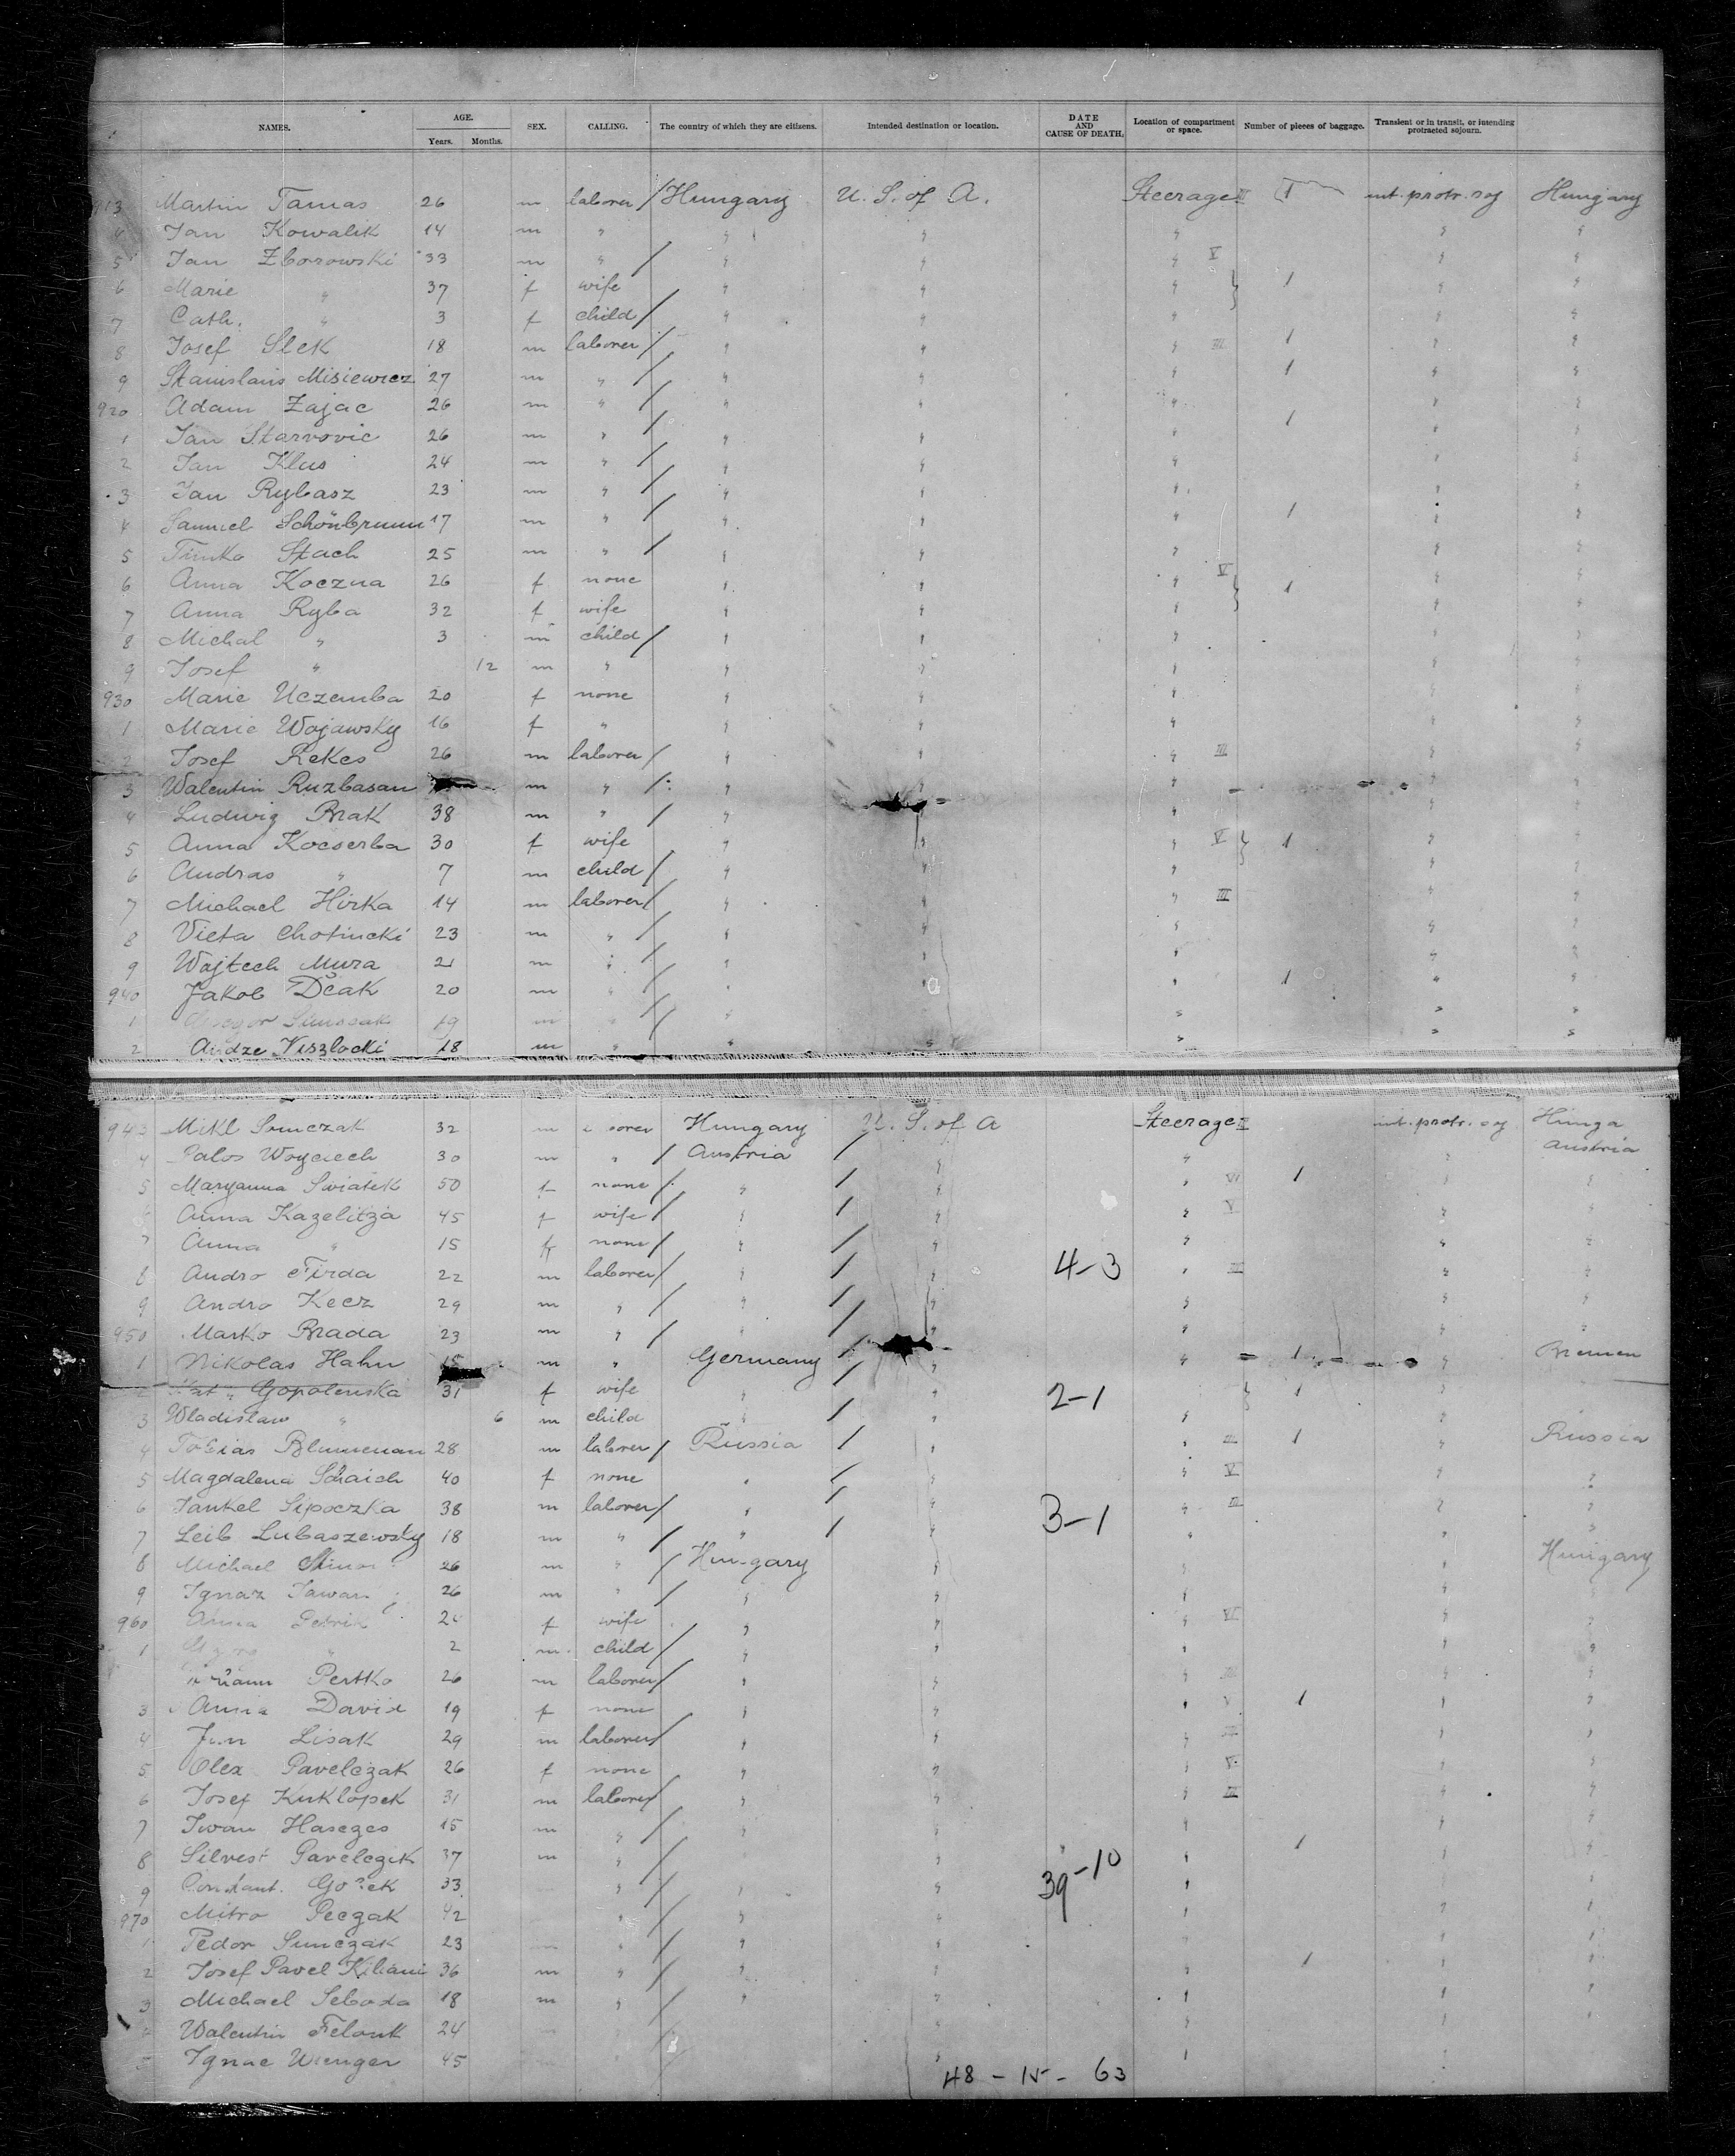 NAMES. AGE. SEX. CALLING. The country of which they are citizens. Intended destination or location. DATE AND CAUSE OF DEATH. Location of compartment or space. Number of pieces of baggage. Transient or in transit, or intending protracted sojourn.
Years. Months.
913 Martin Tamas 26 m laborer / Hungary U. S. of A. Steerage III 1 int. protr. soj Hungary
4 Jan Kowalik 14 m " " " " " "
5 Jan Zborowski 33 m " / " " " V " "
6 Marie " 37 f wife " " " 1 " "
7 Cath. " 3 f child / " " " " "
8 Josef Slek 18 m laborer / " " " III 1 " "
9 Stanislaus Misiewicz 27 m " / " " " 1 " "
920 Adam Zajac 26 m " / " " " " "
1 Jan Starvovic 26 m " / " " " 1 " "
2 Jan Klus 24 m " / " " " " "
3 Jan Rybasz 23 m " / " " " " "
4 Samuel Schönbrunn 17 m " / " " " 1 " "
5 Timko Stach 25 m " / " " " " "
6 Anna Koczna 26 f none " " " V 1 " "
7 Anna Ryba 32 f wife " " " " "
8 Michal " 3 m child / " " " " "
9 Josef " 12 m " " " " " "
930 Marie Uczemba 20 f none " " " " "
1 Marie Wojawsky 16 f " " " " " "
2 Josef Rekes 26 m laborer / " " " III " "
3 Walentin Ruzbasan m " / " " " "
4 Ludwig Brak 38 m " / " " "
5 Anna Kocserba 30 f wife " " " V 1 " "
6 Andras " 7 m child / " " " " "
7 Michael Hirka 14 m laborer / " " " III " "
8 Vieta Chotincki 23 m " / " " " " "
9 Wojtech Mura 21 m " / " " " " "
940 Jakob Dčak 20 m " / " " " 1 " "
1 19 m " / " " " "
2 Andze Viszlocki 18 m " " " " " "
943 Mikl Simczak 32 m Hungary U. S. of A Steerage III int. protr. soj Hunga
4 Palos Woyciech 30 m " / Austria / " " " Austria
5 Maryanna Swiatek 50 f none / " / " " VI 1 " "
Anna Kazelitzja 45 f wife / " / " " V " "
7 Anna " 15 f none / " / " " " "
8 Andro Firda 22 m laborer / " / " 4-3 " III " "
9 Andro Kecz 29 m " / " / " " " "
950 Marko Brada 23 m " / " / " " " "
1 Nikolas Hahn 15 m " Germany / " " 1 " Bremen
Gopolenska 31 f wife " / " 2-1 1 "
3 Wladislaw " 6 m child " / " " "
4 Tobias Blumenau 28 m laborer / Russia / " " III 1 " Russia
5 Magdalena Schaich 40 f none " / " " V " "
6 Jankel Sipoczka 38 m laborer / " / " 3-1 " III " "
7 Leib Lubaszewsky 18 m " / " / " " " "
8 Michael 26 m " / Hungary " " " Hungary
9 Ignaz 26 m " / " " " " "
960 Anna Petrik 24 f wife " " " VI " "
1 " 2 m child / " " " " "
Pertko 26 m laborer / " " " III " "
3 Anna David 19 f none " " " V 1 " "
4 Lisak 29 m laborer / " " " III " "
5 Olex Pavelczak 26 f none " " " V " "
6 Josef Kuklopek 31 m laborer / " " " III " "
7 Iwan Haseges 15 m " / " " " " "
8 Silvest Pavelczik 37 m " / " 39-10 " 1 " "
9 33 " / " " " " "
970 Mitro Peczak 42 " / " " " " "
1 Fedor Simczak 23 " / " " " " "
2 Josef Pavel Kiliani 36 m " / " " " 1 " "
3 Michael Seboda 18 m " / " " " " "
4 Walentin Felonk 24 " "
5 Ignac Wienger 45 " "
48 - 15 - 63